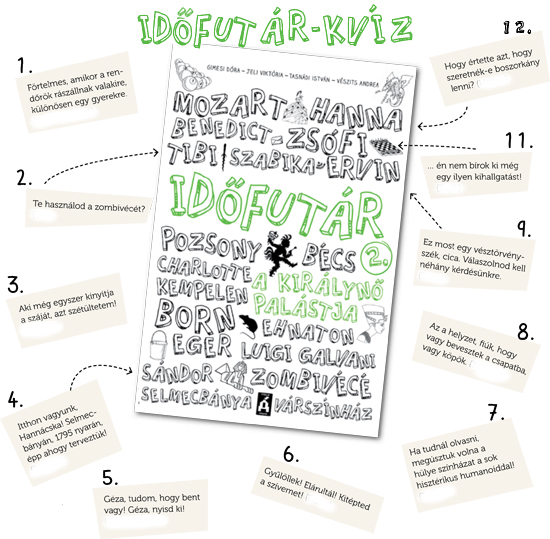 IDŐFUTÁR-KVÍZ
1.
Förtelmes, amikor a ren-
dőrök rászállnak valakire,
különösen egy gyerekre.
12.
Hogy értette azt, hogy
szeretnék-e boszorkány
lenni?
GIMESI DÓRA – JELI VIKTÓRIA – TASNÁDI ISTVÁN – VÉSZITS ANDREA
MOZART HANNA
BENEDICT ZSÓFI
TIBI SZABIKA ERVIN
IDŐFUTÁR
POZSONY BÉCS 2.
CHARLOTTE A KIRÁLYNŐ
KEMPELEN PALÁSTJA
BORN EHNATON
EGER LUIGI GALVANI
SÁNDOR ZOMBIVÉCÉ
SELMECBÁNYA VÁRSZÍNHÁZ
11.
... én nem bírok ki még
egy ilyen kihallgatást!
2.
Te használod a zombivécét?
9.
Ez most egy vésztörvény-
szék, cica. Válaszolnod kell
néhány kérdésünkre.
3.
Aki még egyszer kinyitja
a száját, azt szétültetem!
8.
Az a helyzet, fiúk, hogy
vagy bevesztek a csapatba,
vagy köpök.
4.
Itthon vagyunk,
Hannácska! Selmec-
bányán, 1795 nyarán,
épp ahogy terveztük!
7.
Ha tudnál olvasni,
megúsztuk volna a
hülye színházat a sok
hisztérikus humanoiddal!
5.
Géza, tudom, hogy bent
vagy! Géza, nyisd ki!
6.
Gyűlöllek! Elárultál! Kitépted
a szívemet!